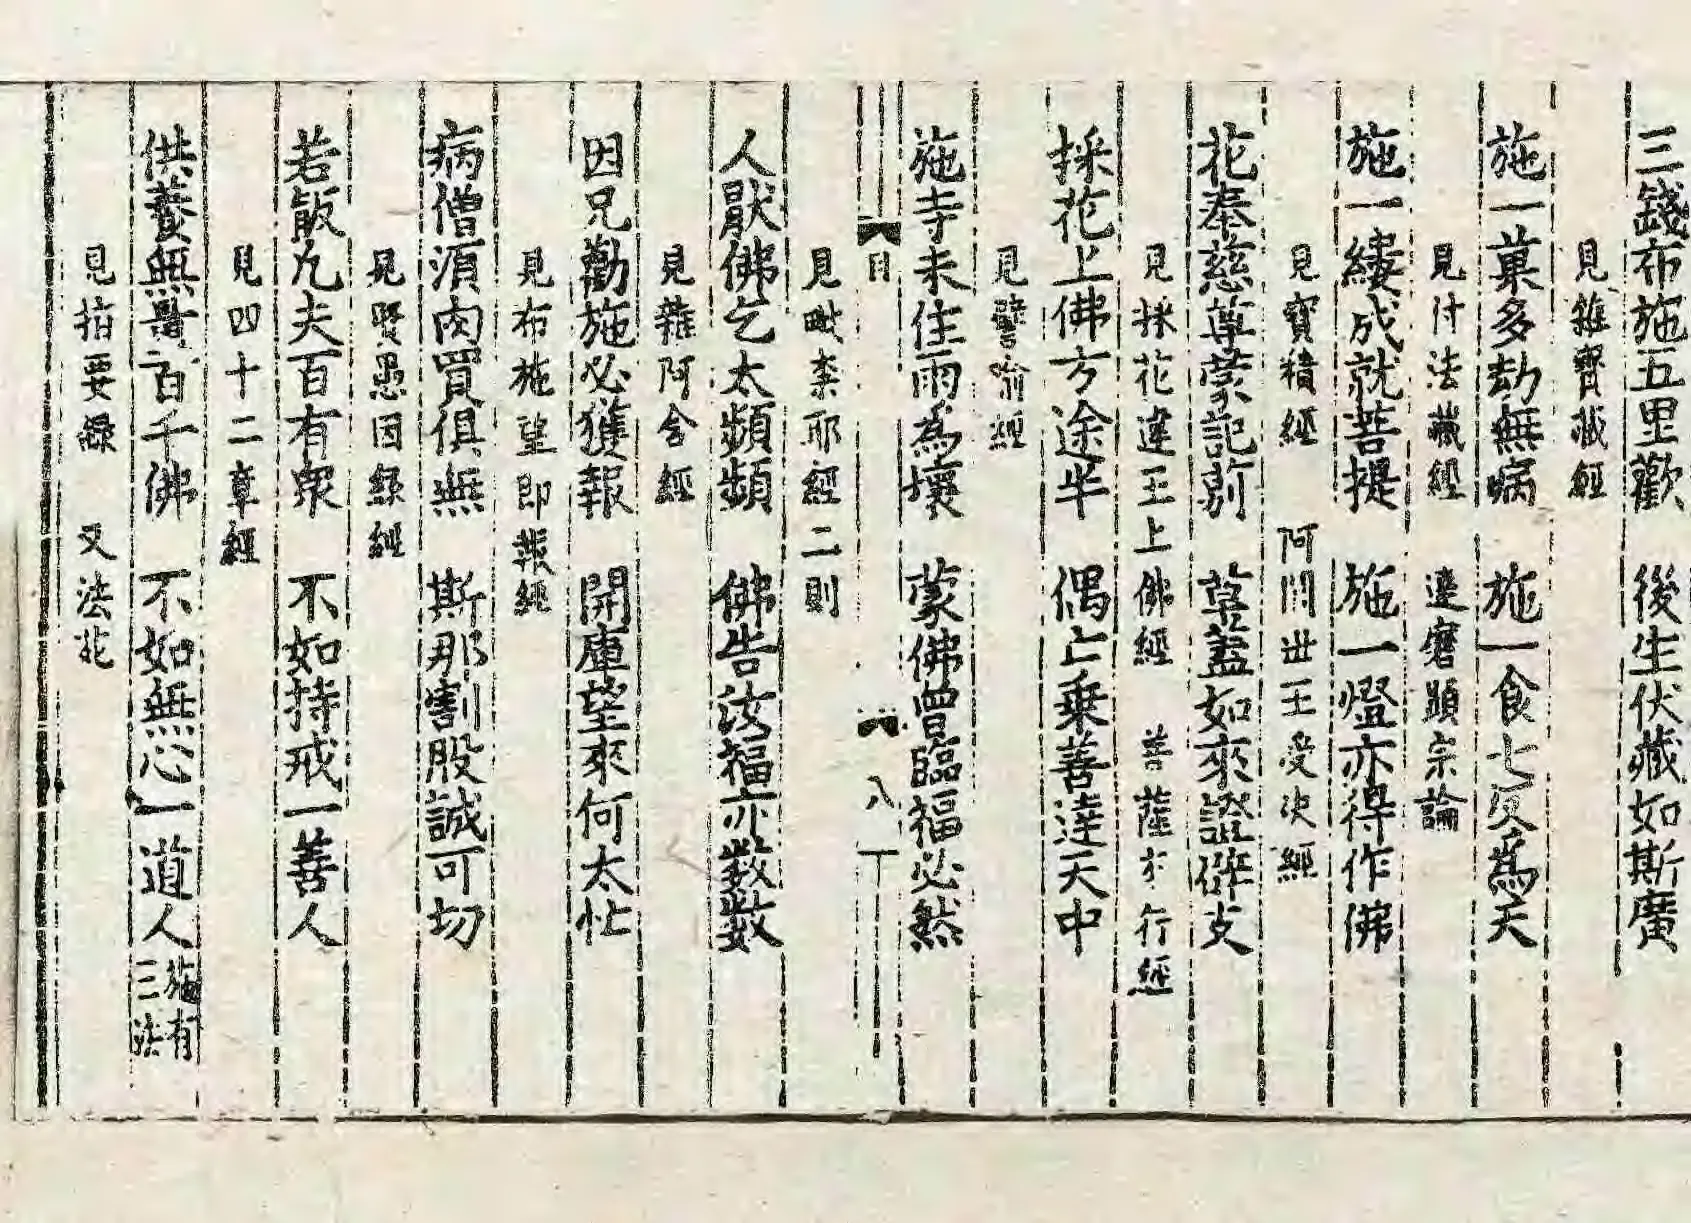 三錢布施五里歡　後生伏藏如斯廣
見雜寳藏經
施一菓多劫無病　施一食七返爲天
見付法藏經　達磨顯宗論
施一縷成就菩提　施一燈亦得作佛
見寶積經　阿闍世王受決經
花奉慈尊蒙記莂　草蓋如來證辟支
見採花違王上佛經　菩薩本行經
採花上佛方途半　偶亡乗善達天中
見譬喻經
施寺未住雨為壞　蒙佛曾臨福必然
目　八　丁
見毗柰耶經二則
人厭佛乞太頻頻　佛告汝福亦数数
見雜阿含經
因兄勸施必獲報　開庫望來何太忙
見布施望即報經
病僧湏肉買俱無　斯那割股誠可切
見賢愚因緣經
若飯凢夫百有衆　不如持戒一善人
見四十二章經
供養無量百千佛　不如無心一道人 施有三法
見指要錄　又法花